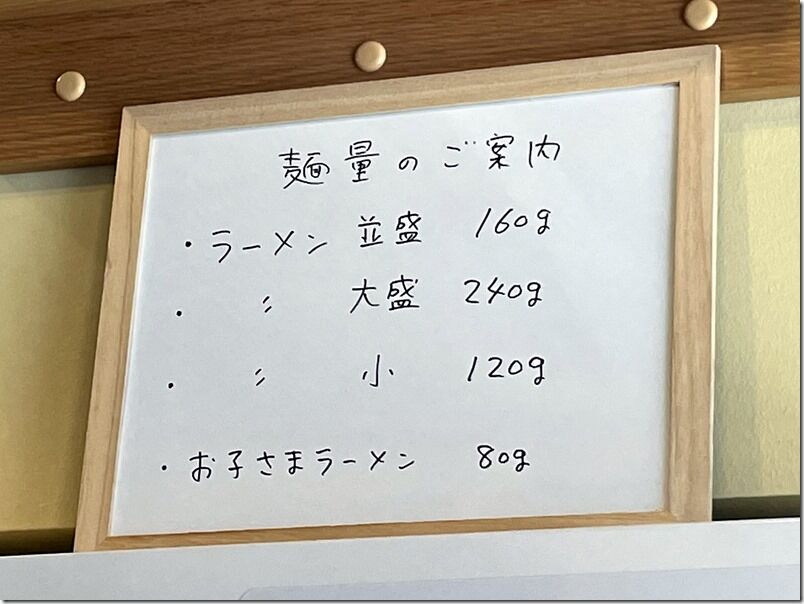 麺量のご案内
・ラーメン 並盛 160g
・〃 大盛 240g
・〃 小 120g
・お子さまラーメン 80g